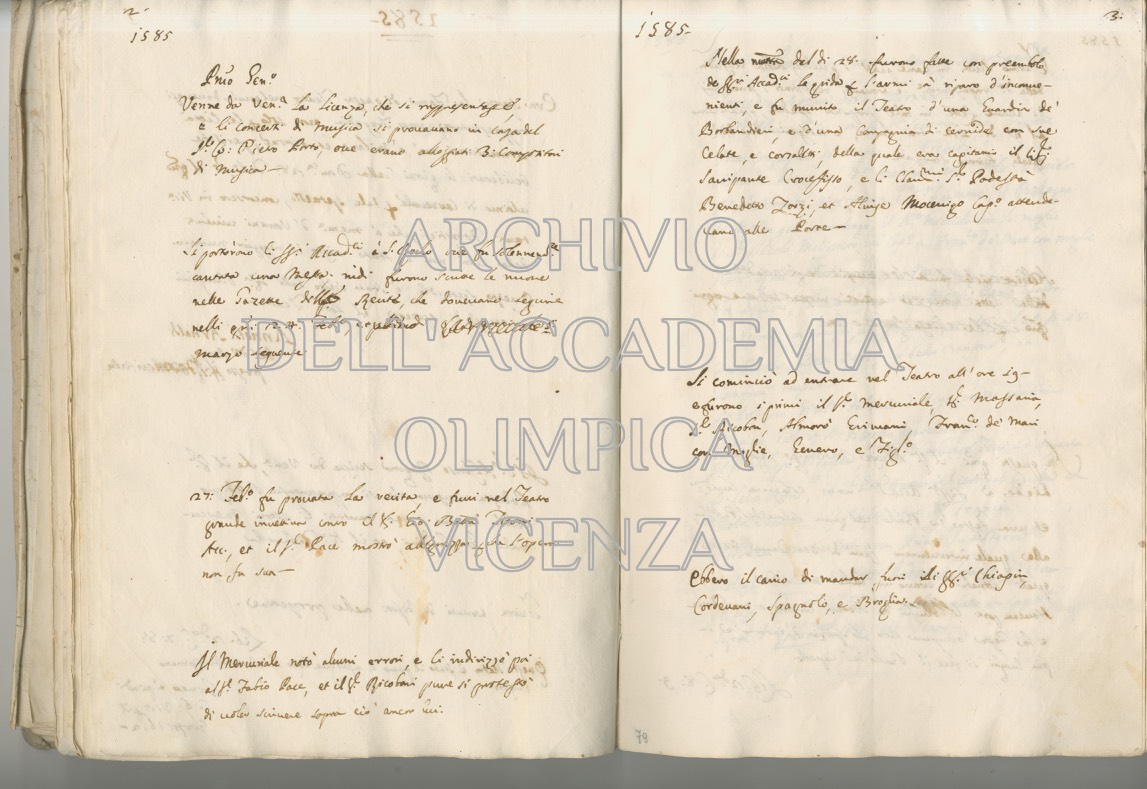 2.
1585
Primo Gen.º
Venne da Ven.ª la licenza, che si rappresentasse,
e li concerti di Musica si provavano in casa del
Piero Porto, ove erano alloggiati 3: Compositori
di Musica
Si portorono li SS.ri Accad.ci à S.
cantata una Messa. indi furono scritte le nuove
nelle Gazette della Recita, che dovevano seguire
nelli
marzo seguente
27: Feb.º fu provata la recita e fuvvi nel Teatro
grande invettiva contro il
Acc., et il S.r Pace mostrò allegrezza che l'opera
non fu sua
Il Mercuriale notò alcuni errori, e li indirizzò poi
al S.r Fabio Pace, et il S.r Riccoboni pure si protestò
di voler scrivere sopra ciò ancor lui.
3.
1585.
Nella del dì 28. furono fatte con preambolo
de SS.ri Accad.ci le grida l'armi à riparo d'inconve-
nienti, e fu munito il Teatro d'una Guardia de'
Bombardieri, e d'una Compagnia di cernide con sue
Celate, e corsaletti, della quale era capitanio il
Sacripante Crocefisso, e li S.ri Podestà
Benedetto Zorzi, et Alvise Mocenigo Cap.º attende-
vano alle Porte
Si cominciò ad entrare nel Teatro all'ore 19
e furono i primi il S.r Mercuriale, Massaria,
Ricobon, Almorò Grimani, Fran.co de' Mari
con Moglie, Genero, e Figl.º
Ebbero il carico di mandar fuori li SS.ri Chiapin,
Cordevani, Spagnolo, e Broglia.
79
ARCHIVIO
DELL'ACCADEMIA
OLIMPICA
VICENZA